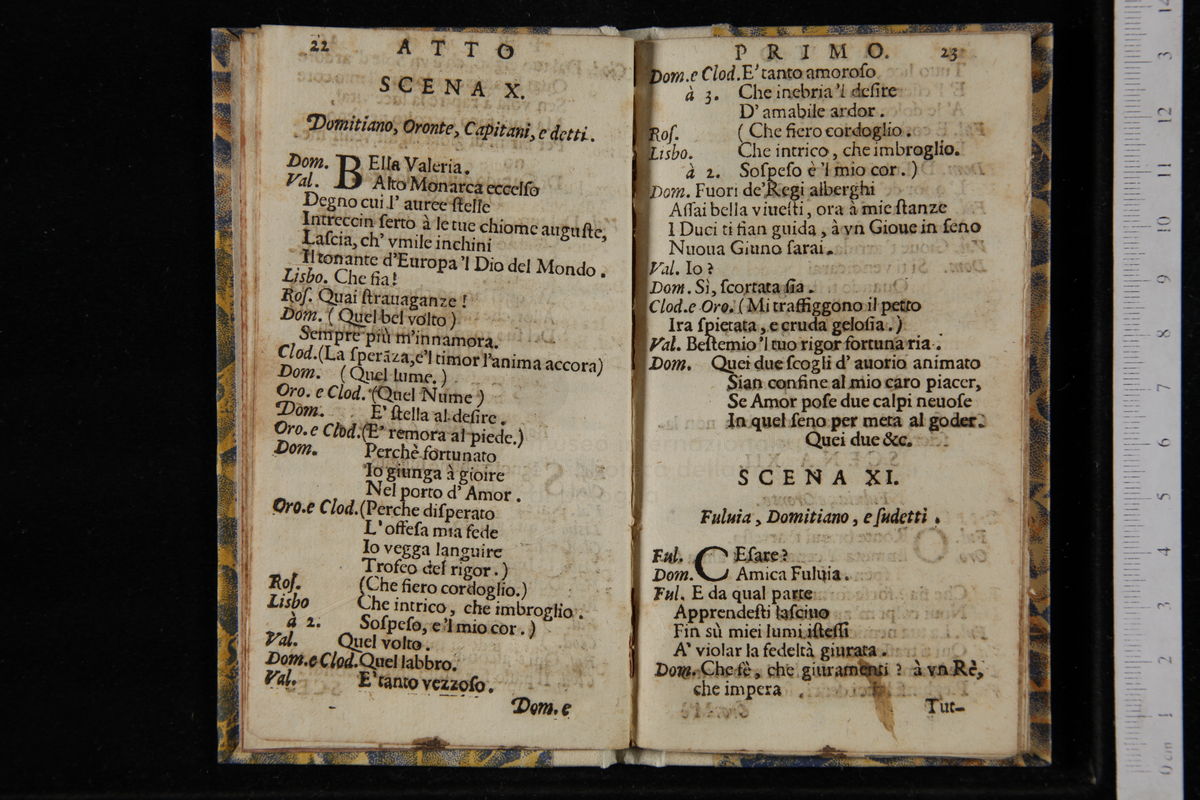 22 ATTO
SCENA X.
Domitiano, Oronte, Capitani, e detti.
Dom. BElla Valeria.
Val. Alto Monarca eccelso
Degno cui l' auree stelle
Intreccin serto à le tue chiome auguste,
Lascia, ch' vmile inchini
Il tonante d'Europa 'l Dio del Mondo.
Lisbo. Che fia!
Ros. Quai strauaganze!
Dom. (Quel bel volto)
Sempre più m'innamora.
Clod. (La sperãza, e'l timor l'anima accora)
Dom. (Quel lume.)
Oro. e Clod. (Quel Nume)
Dom. E' stella al desire.
Oro. e Clod. (E' remora al piede.)
Dom. Perchè fortunato
Io giunga à gioire
Nel porto d' Amor.
Oro. e Clod. (Perche disperato
L' offesa mia fede
Io vegga languire
Trofeo del rigor.)
Ros. (Che fiero cordoglio.)
Lisbo Che intrico, che imbroglio.
à 2. Sospeso, e 'l mio cor.)
Val. Quel volto.
Dom. e Clod. Quel labbro.
Val. E' tanto vezzoso.
Dom. e
PRIMO. 23
Dom. e Clod. E' tanto amoroso
à 3. Che inebria 'l desire
D' amabile ardor.
Ros. (Che fiero cordoglio.
Lisbo. Che intrico, che imbroglio.
à 2. Sospeso è 'l mio cor.)
Dom. Fuori de' Regi alberghi
Assai bella viuesti, ora à mie stanze
I Duci ti fian guida, à vn Gioue in seno
Nuoua Giuno sarai.
Val. Io?
Dom. Sì, scortata sia.
Clod. e Oro. (Mi traffiggono il petto
Ira spietata, e cruda gelosia.)
Val. Bestemio 'l tuo rigor fortuna ria.
Dom. Quei due scogli d' auorio animato
Sian confine al mio caro piacer,
Se Amor pose due calpi neuose
In quel seno per meta al goder.
Quei due &c.
SCENA XI.
Fuluia, Domitiano, e sudetti.
Ful. CEsare?
Dom. Amica Fuluia.
Ful. E da qual parte
Apprendesti lasciuo
Fin sù miei lumi istessi
A' violar la fedeltà giurata.
Dom. Che fè, che giuramenti? à vn Rè,
che impera
Tut-